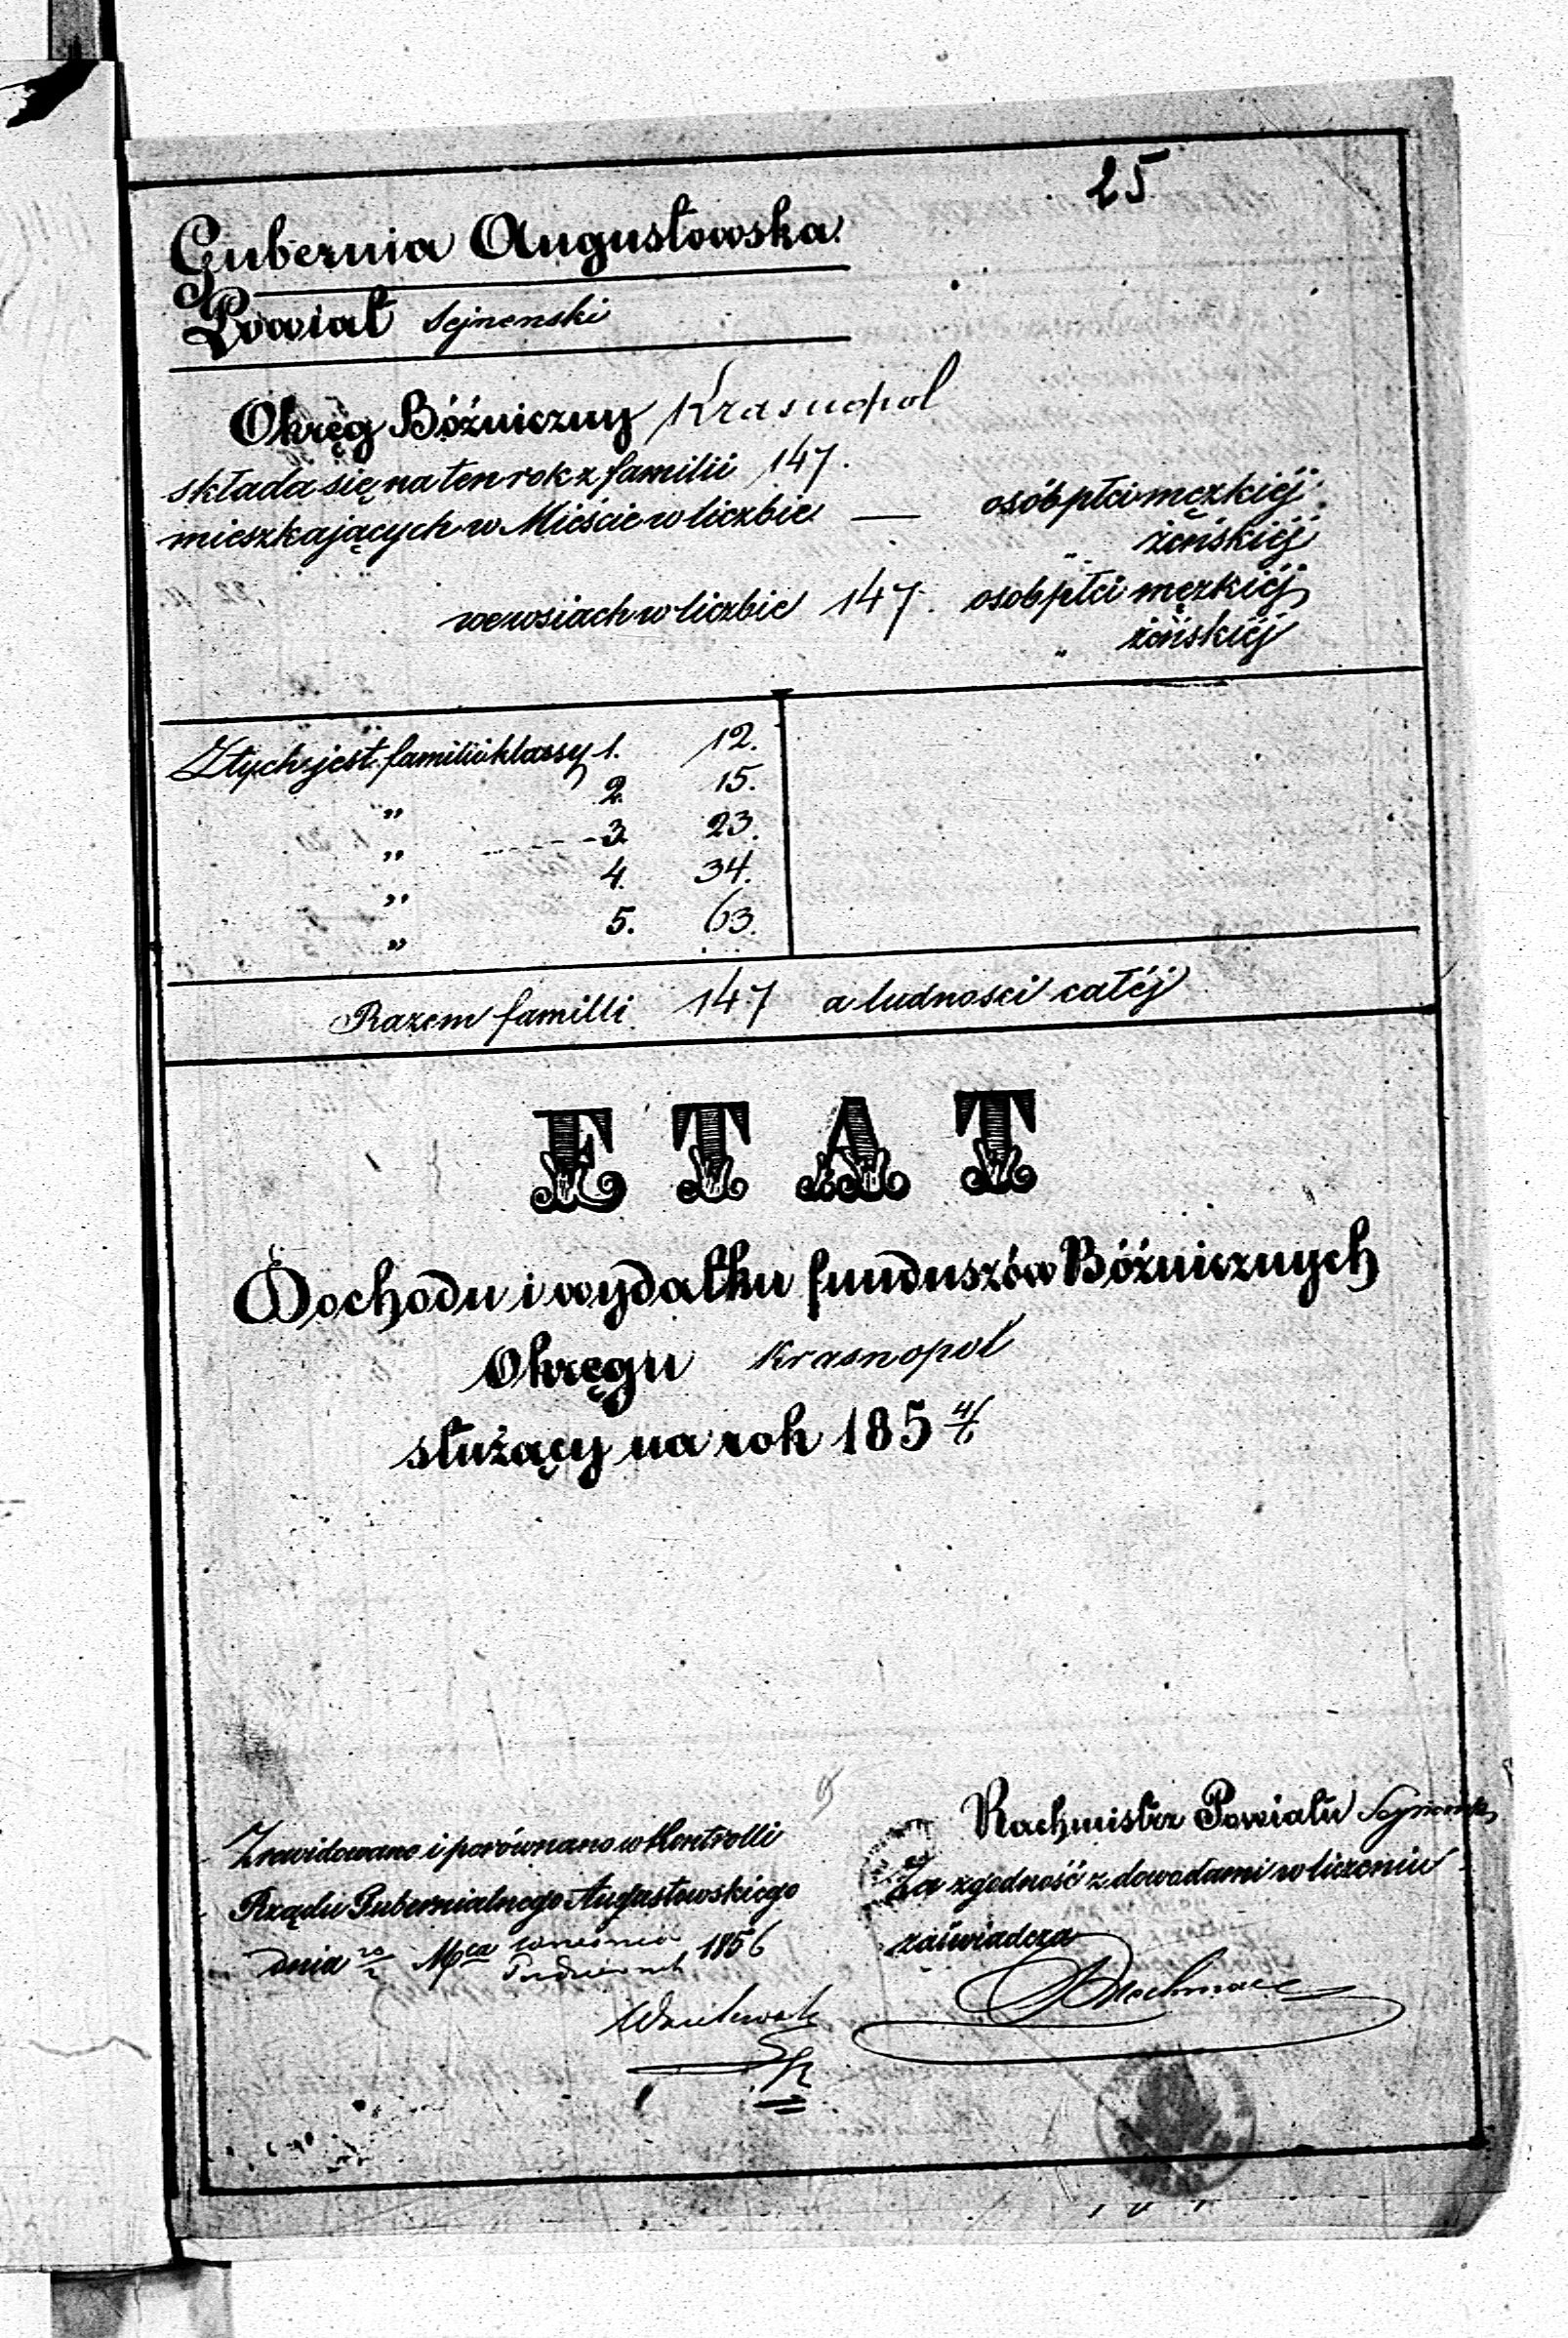 25
Gubernia Augustowska.
Powiat Sejnenski
Okręg Bóźniczny Krasnopol
składa się na ten rok z familii 147.
mieszkających w Mieście w liczbie — osób płci męzkiéj
„ żeńskiéj
we wsiach w liczbie 147. osob płci męzkiéj
„ żeńskiéj
Z tych jest familii klassy 1. 12.
„ 2. 15.
„ 3. 23.
„ 4. 34.
„ 5. 63.
Razem familli 147 a ludnosci całéj
ETAT
Dochodu i wydatku funduszów Bóźnicznych
Okręgu Krasnopol
służący na rok 185 4/6
Rachmistrz Powiatu Sejnensk
Za zgodność z dowodami w liczeniu
zaświadcza
Zrewidowano i porównano w Kontrolli
Rządu Gubernialnego Augustowskiego
dnia Mca 1856